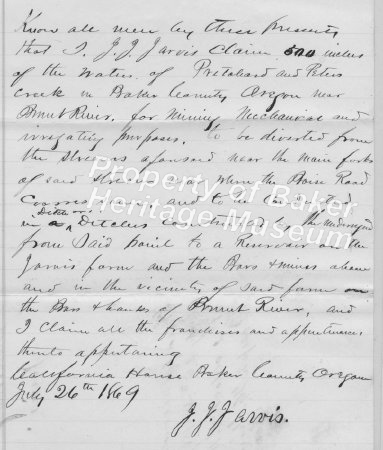 Know all men by these Presents
that I, J. J. Jarvis Claim 500 inches
of the water of Pritchard and Peters
creek in Baker County Oregon near
Burnt River, for Mining Mechanical and
irrigating purposes. to be diverted from
the streams aforesaid near the main forks
of said streams near where the Boise Road
crosses same and to be conducted
in a Ditch or Ditches constructed by the undersigned
from Said point to a Reservoir on the
Jarvis farm and the Bars & mines above
and in the vicinity of said farm on
the Bars & banks of Burnt River, and
I claim all the franchises and appurtenances
thereto appertaining
California House Baker County Oregon
July 26th 1869
J. J. Jarvis.
Property of Baker
Heritage Museum